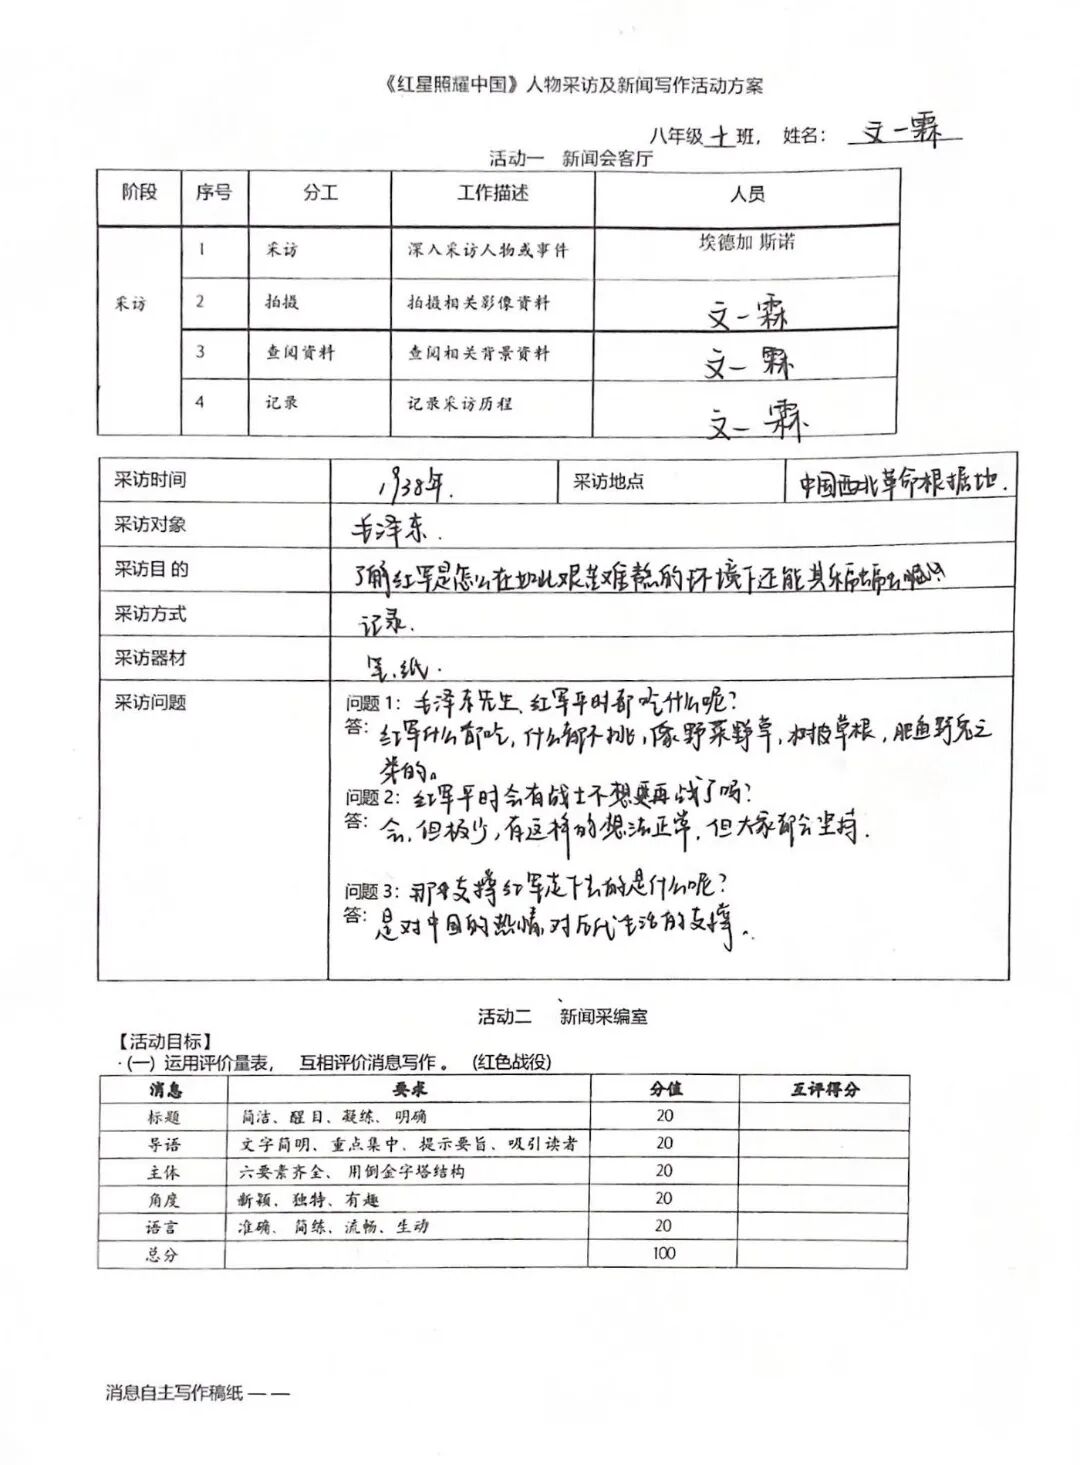 《红星照耀中国》人物采访及新闻写作活动方案
八年级 十 班， 姓名： 文一霖
活动一 新闻会客厅
阶段 序号 分工 工作描述 人员
采访 1 采访 深入采访人物或事件 埃德加 斯诺
2 拍摄 拍摄相关影像资料 文一霖
3 查阅资料 查阅相关背景资料 文一霖
4 记录 记录采访历程 文一霖
采访时间 1938年. 采访地点 中国西北革命根据地.
采访对象 毛泽东.
采访目的 了解红军是怎么在如此艰苦难熬的环境下还能其乐
采访方式 记录.
采访器材 笔、纸.
采访问题 问题1：毛泽东先生、红军平时都吃什么呢？
答：红军什么都吃，什么都不挑，像野菜野草，树皮草根，肥鱼野兔之
类的。
问题2：红军平时会有战士不想要再战了吗？
答：会，但极少，有这样的想法正常，但大家都会坚持.
问题3：那支撑红军走下去的是什么呢？
答：是对中国的热情，对后代生活的支撑。
活动二 新闻采编室
【活动目标】
·(一) 运用评价量表， 互相评价消息写作 。 (红色战役)
消息 要求 分值 互评得分
标题 简洁、醒目、凝练、明确 20
导语 文字简明、重点集中、提示要旨、吸引读者 20
主体 六要素齐全、 用倒金字塔结构 20
角度 新颖、独特、有趣 20
语言 准确、简练、流畅、生动 20
总分 100
消息自主写作稿纸——